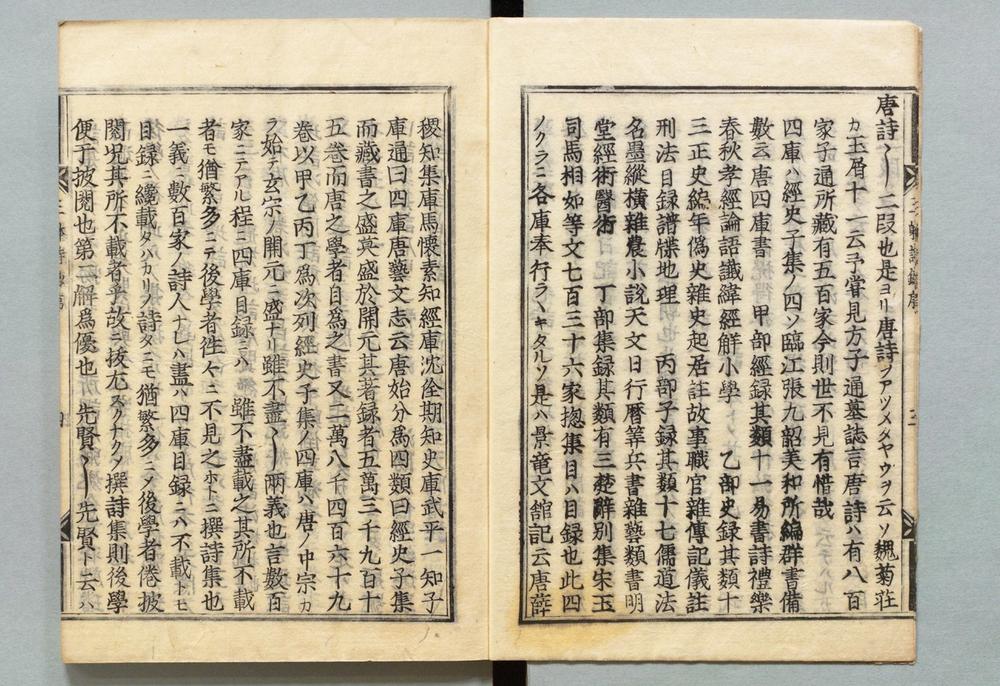 唐詩〳〵二段也是ヨリ唐詩ヲアツメタヤウヲ云ソ魏菊荘
カ玉屑十一云予嘗見方子通墓誌言唐詩ハ有八百
家子通所藏有五百家今則世不見有惜哉
四庫ハ經史子集ノ四ソ臨江張九韶美和所編群書備
數云唐四庫書　甲部經録其類十一易書詩禮樂
春秋孝經論語讖緯經解小學　乙部史録其類十
三正史編年僞史雜史起居註故事職官雜傳記儀註
刑法目録譜牒地理　丙部子録其類十七儒道法
名墨縱横雜農小說天文日行曆筭兵書雜藝類書明
堂經術醫術　丁部集録其類有三楚辭別集宋玉
司馬相如等文七百三十六家揔集目ハ目録也此四
ノクラニ各庫奉行ラヽキタルソ是ハ景竜文館記云唐薛
稷知集庫馬懷素知經庫沈佺期知史庫武平一知子
庫通曰四庫唐藝文志云唐始分爲四類曰經史子集
而藏書之盛莫盛於開元其著録者五萬三千九百十
五卷而唐之學者自爲之書又二萬八千四百六十九
卷以甲乙丙丁爲次列經史子集ノ四庫ハ唐ノ中宗カ
ラ始テ玄宗ノ開元ニ盛ナリ雖不盡〳〵兩義也言數百
家ニテアル程ニ四庫目録ニハ雖不盡載之其所不載
者モ猶繁多ニテ後學者徃々ニ不見之ホトニ撰詩集也
一義ニ數百家ノ詩人ナレハ盡ハ四庫目録ニハ不載トモ
目録ニ纔載タハカリノ詩タニモ猶繁多ニメ後學者倦披
閲况其所不載者乎故ニ抜尤スクナクメ撰詩集則後學
便于披閲也第二解爲優也　先賢〳〵先賢ト云ハ